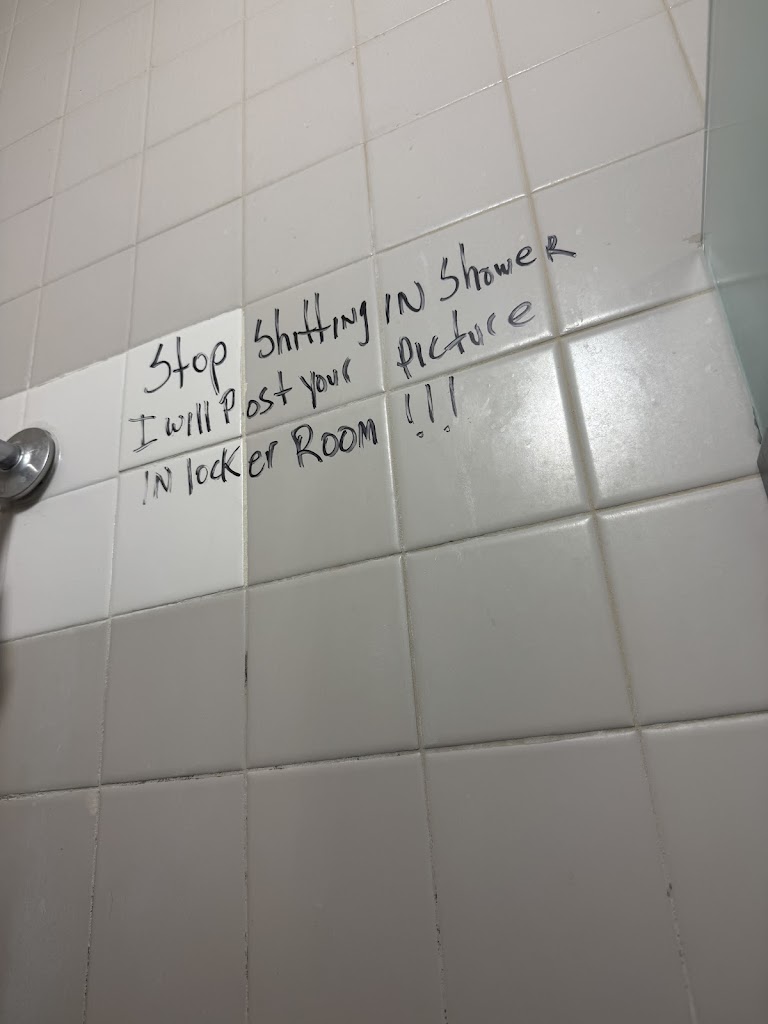 Stop Shitting IN Shower
I will Post your Picture
IN locker Room !!!